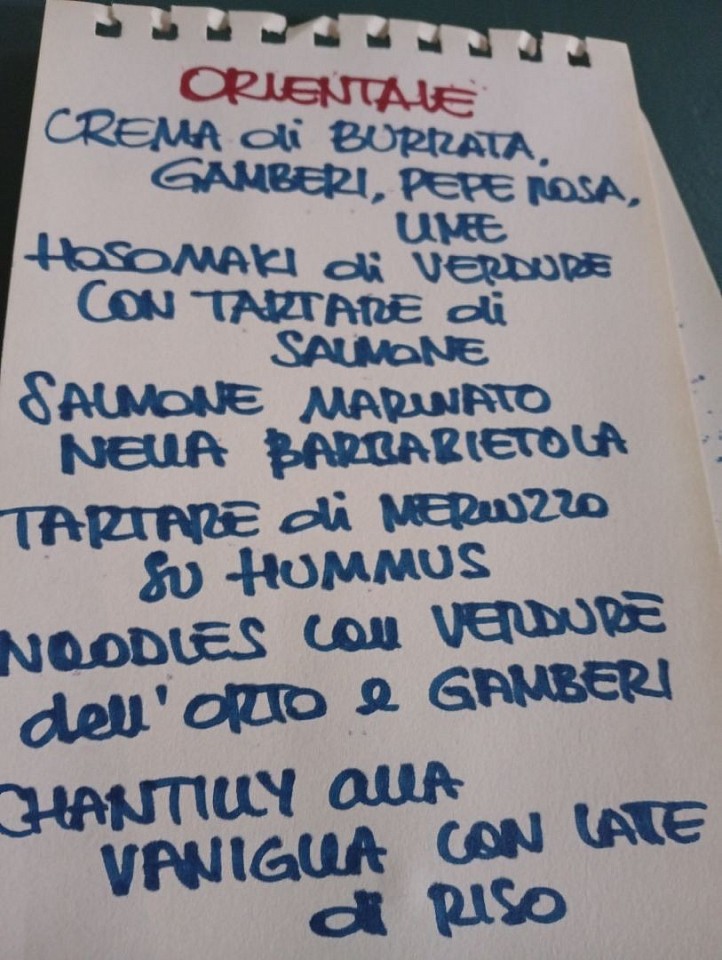 ORIENTALE
CREMA di BURRATA,
GAMBERI, PEPE ROSA,
UME
HOSOMAKI di VERDURE
CON TARTARE di
SALMONE
SALMONE MARINATO
NELLA BARBABIETOLA
TARTARE di MERLUZZO
SU HUMMUS
NOODLES con VERDURE
dell'ORTO e GAMBERI
CHANTILLY alla
VANIGLIA CON LATTE
di RISO